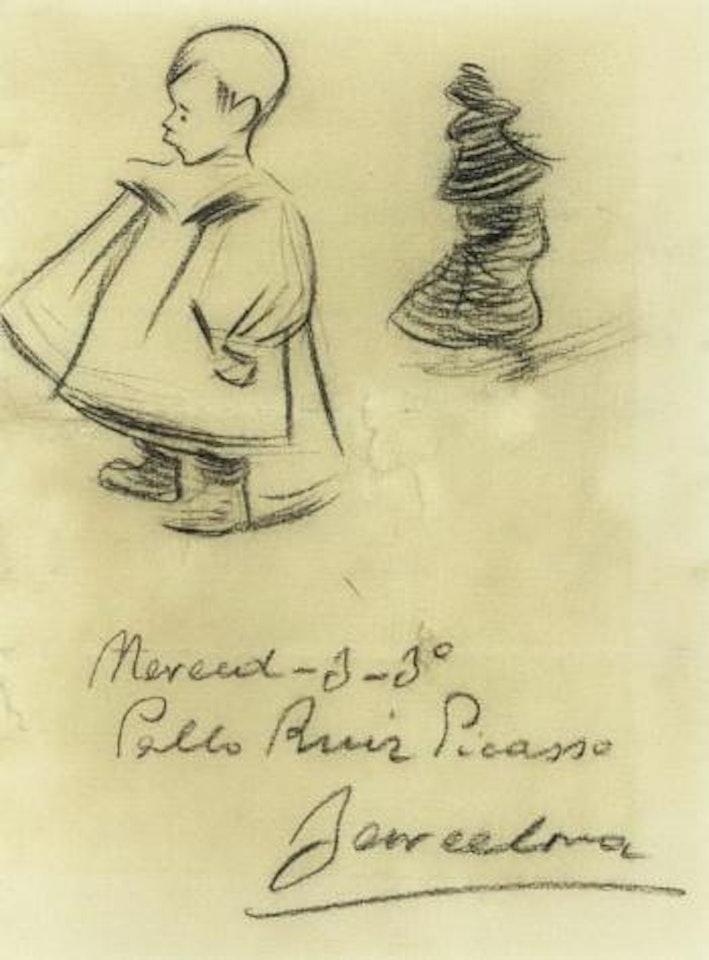 Merced-3-3º
Pablo Ruiz Picasso
Barcelona